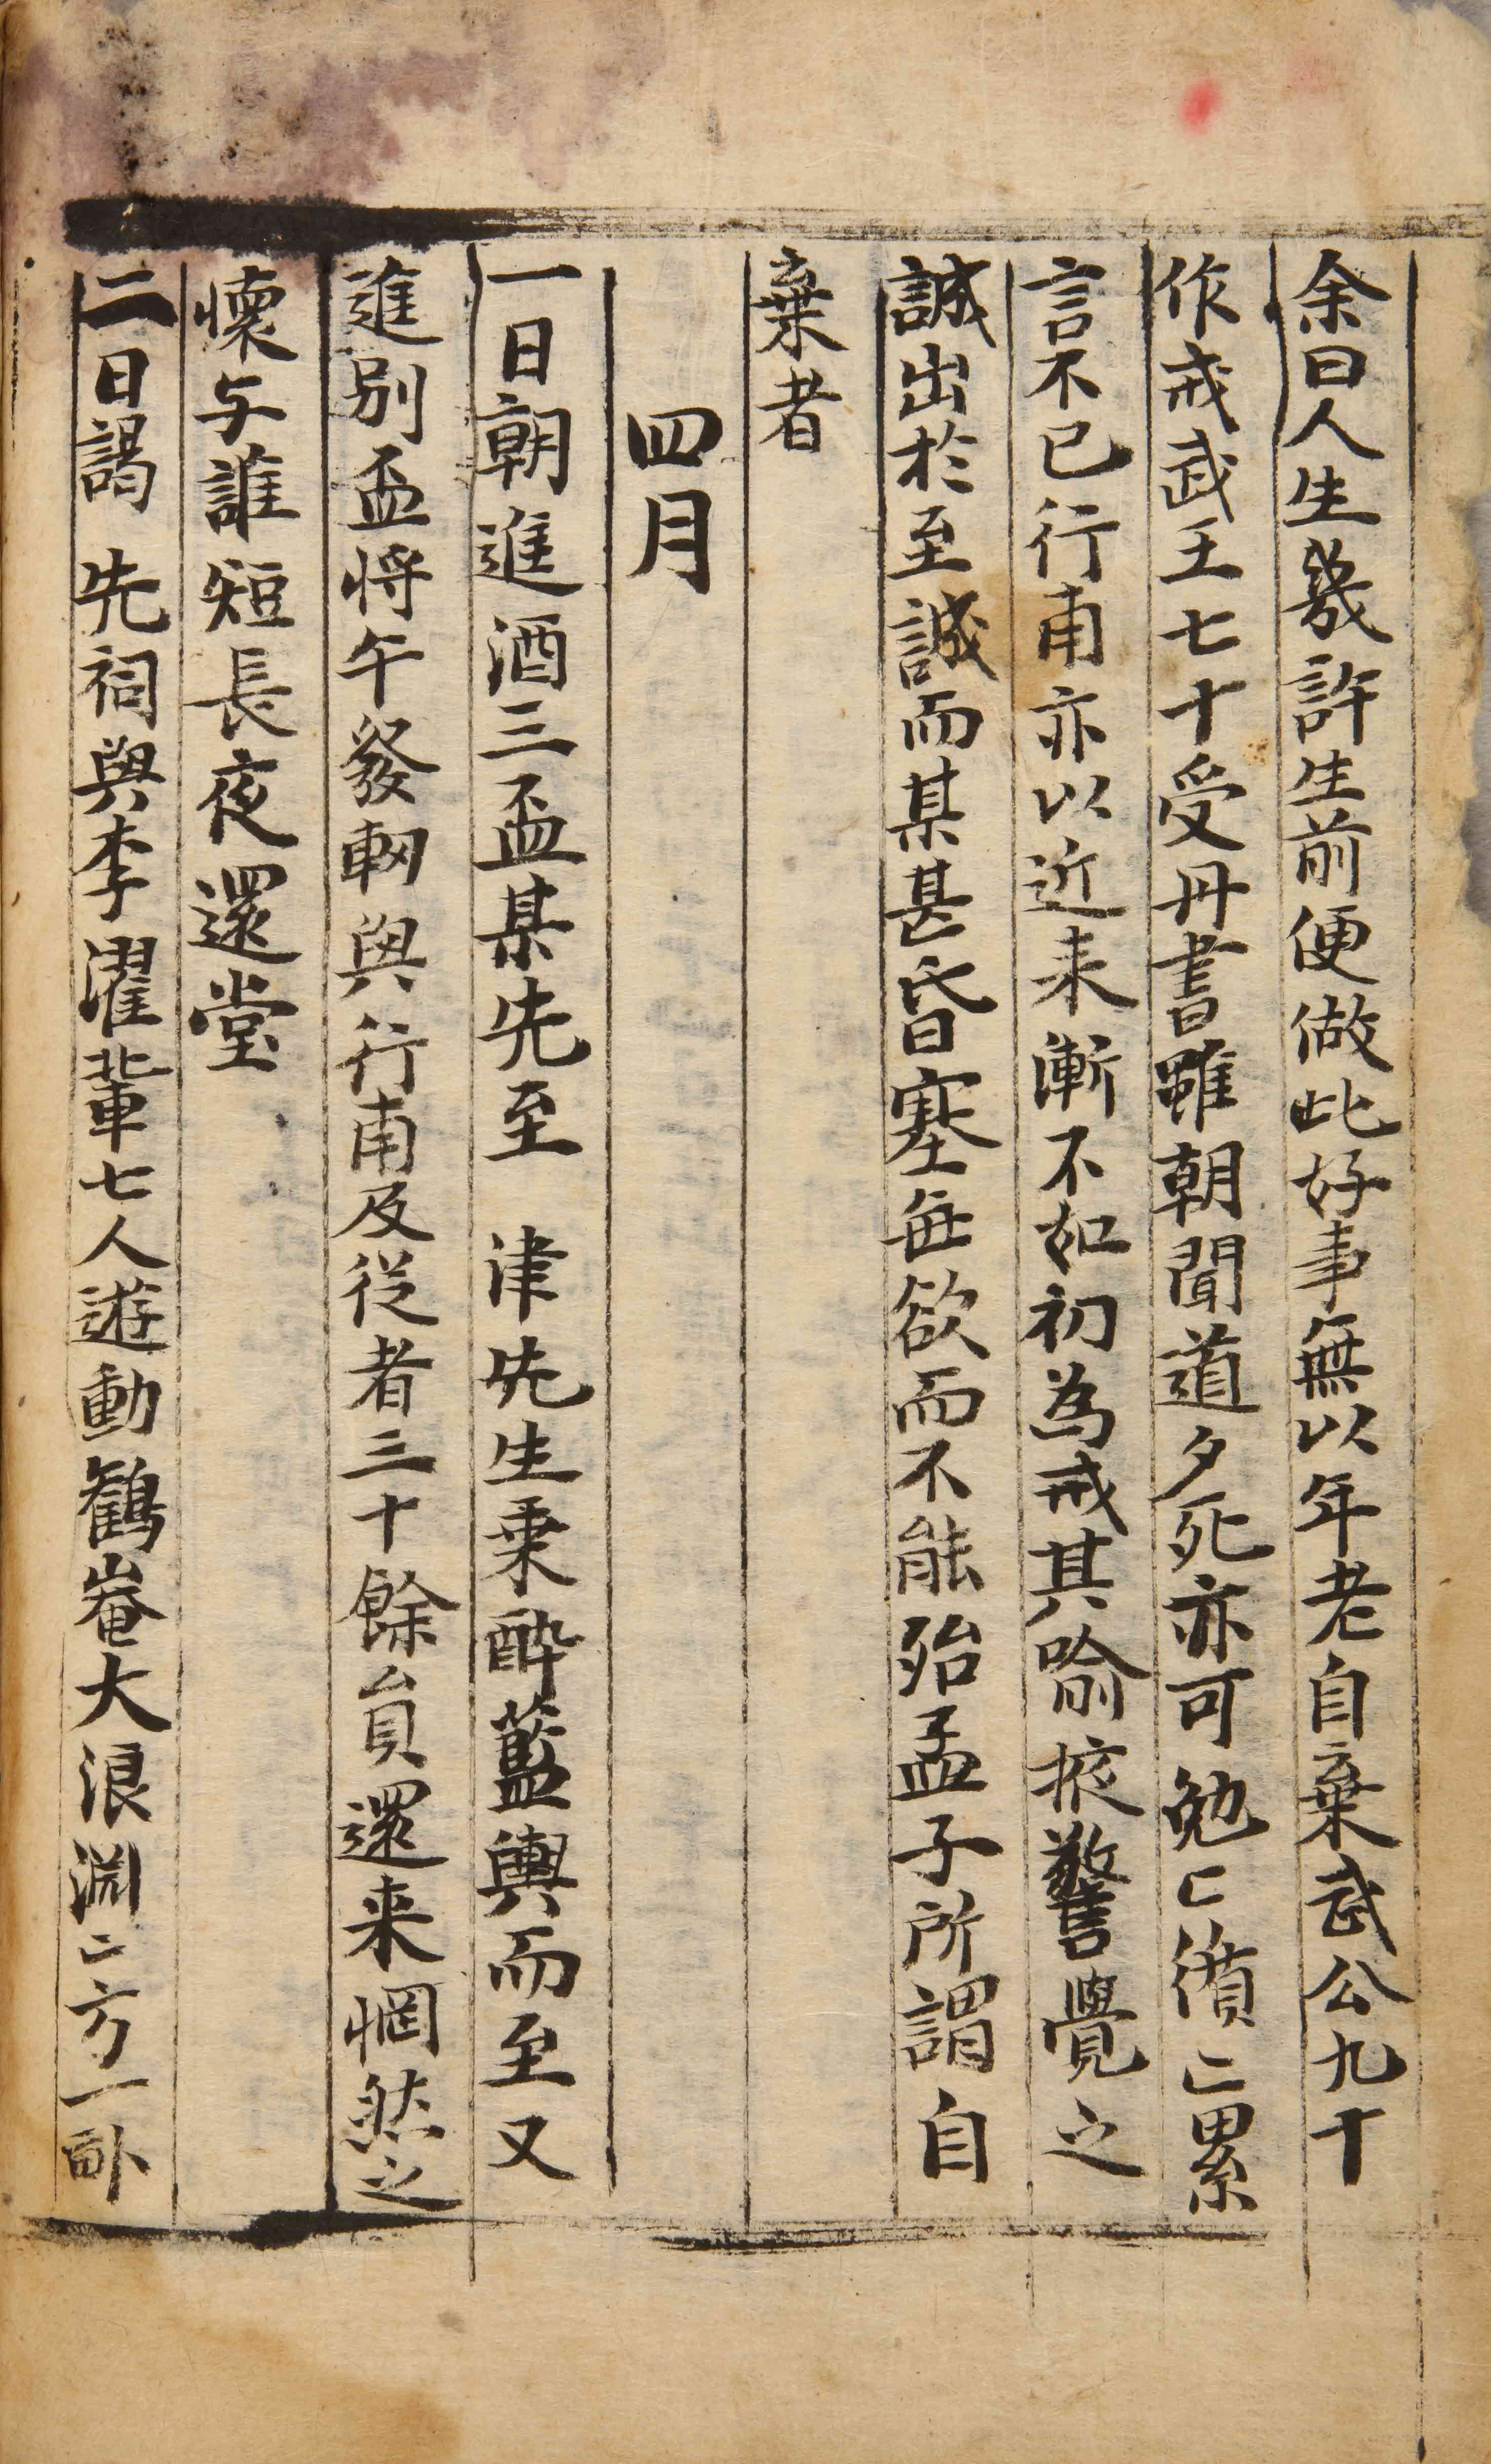 余曰人生幾許生前便做此好事無以年老自棄武公九十
作戒武王七十受丹書雖朝聞道夕死亦可勉〻懫〻累
言不已行甫亦以近来漸不如初為戒其喻掖警覺之
誠出於至誠而某甚昏塞每欲而不能殆孟子所謂自
棄者
四月
一日朝進酒三盃某先至 津先生乗醉籃輿而至又
進別盃将午發軔與行甫及從者三十餘員還来惘然之
懷与誰短長夜還堂
二日謁 先祠與李濯輩七人遊動鶴菴大浪淵二方一卧